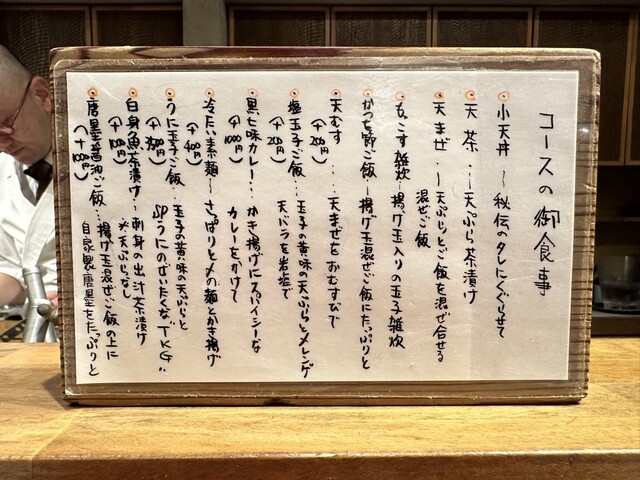 コースの御食事
小天丼 〜 秘伝のタレにくぐらせて
天茶 ・・〜天ぷら茶漬け
天まぜ ・〜天ぷらとご飯を混ぜ合せる
混ぜご飯
もっこす雑炊〜揚げ玉入りの玉子雑炊
かつを節ご飯〜揚げ玉混ぜご飯にたっぷりと
天むす・・・・天まぜをおむすびで
(+200円)
塩玉子ご飯・・・玉子の黄味の天ぷらとメレンゲ
(+200円)
天バラを岩塩で
黒七味カレー・・・かき揚げにスパイシーな
(+1000円)
カレーをかけて
冷たい素麺〜さっぱりと〆の麺とかき揚げ
(+400円)
うに玉子ご飯・・・玉子の黄味の天ぷらと
SPうにのぜいたくな"TKG"
白身魚茶漬け・・刺身の出汁茶漬け
※天ぷらなし
唐墨醤油ご飯・・・揚げ玉混ぜご飯の上に
自家製唐墨をたっぷりと